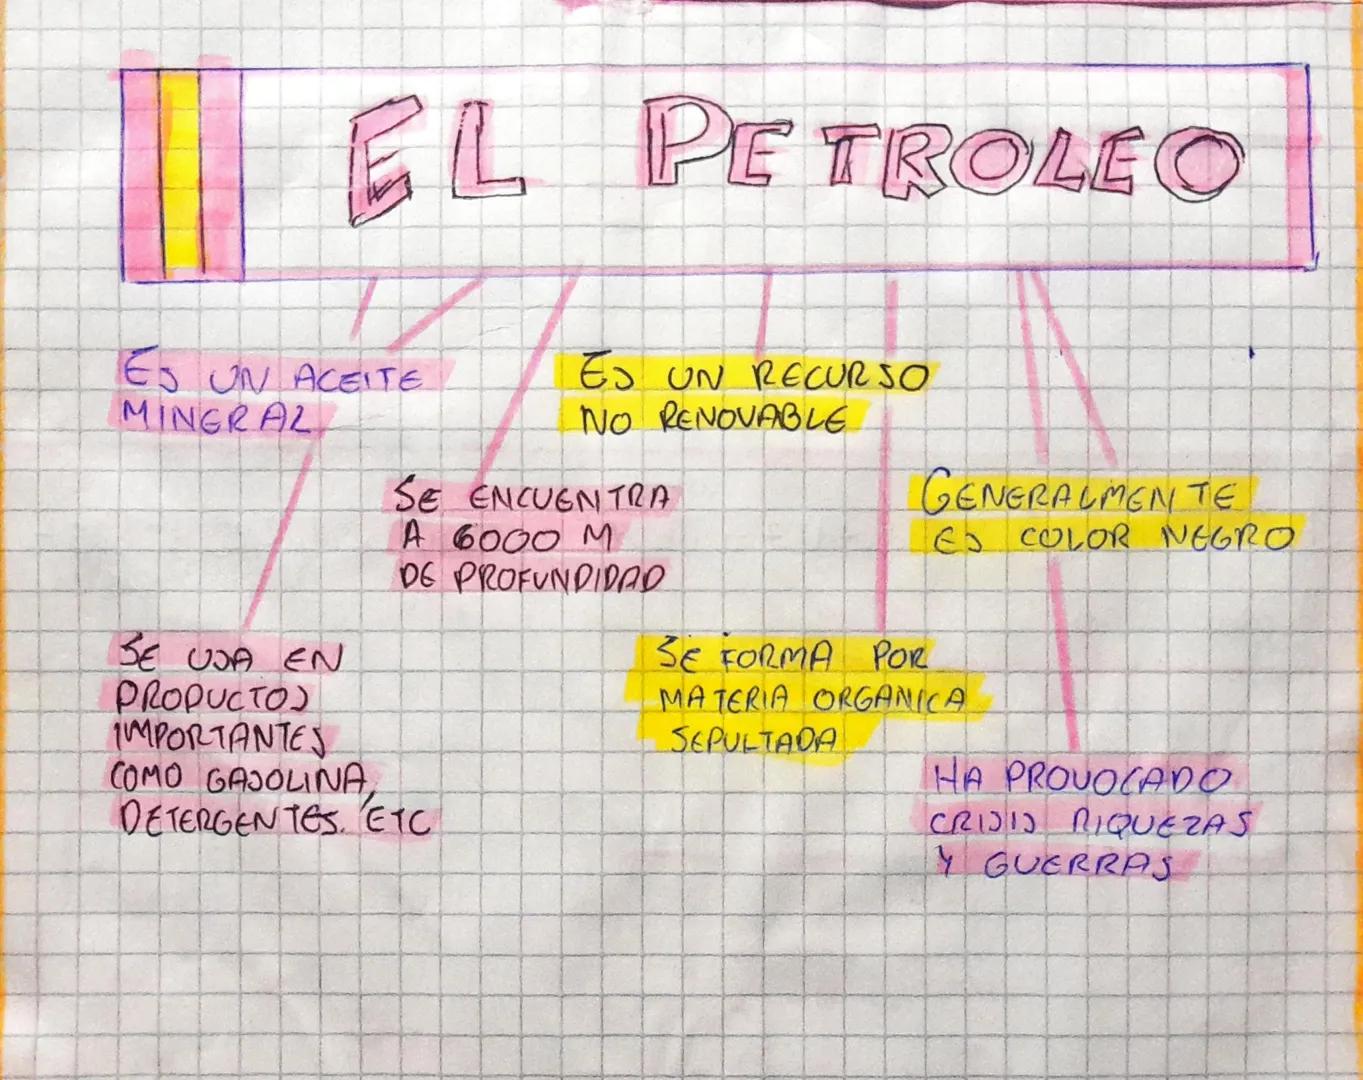 EL PETROLEO
ES UN ACEITE
MINERAL
ES UN RECURSO
NO RENOVABLE
SE ENCUENTRA
A 6000 M
DE PROFUNDIDAD
GENERALMENTE
ES COLOR NEGRO
SE USA EN
PRODUCTOS
IMPORTANTES
COMO GASOLINA,
DETERGENTES. ETC
SE FORMA POR
MATERIA ORGANICA
SEPULTADA
HA PROVOCADO
CRISIS RIQUEZAS
Y GUERRAS